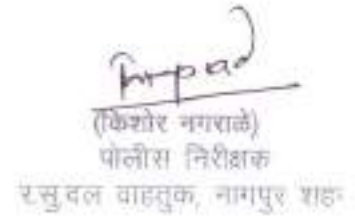 (किशोर नगराळे)
पोलीस निरीक्षक
र.सु.दल वाहतुक, नागपुर शहर